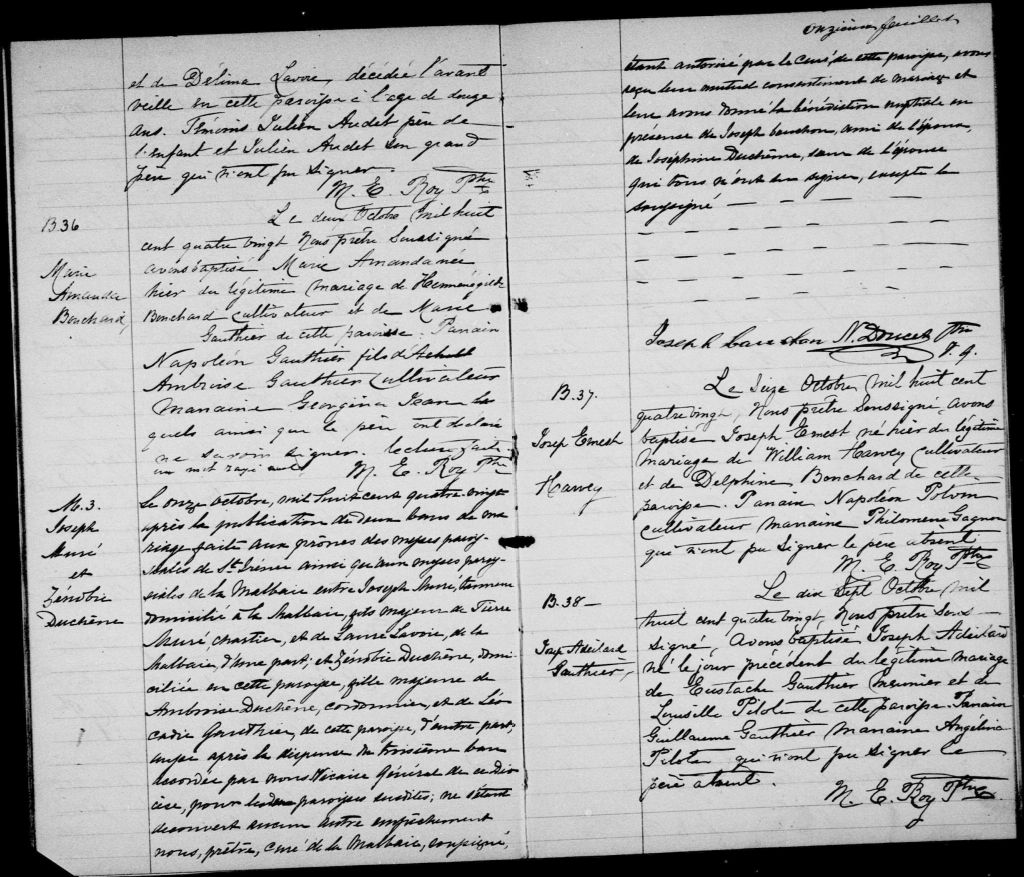 et de Délima Lavoie, décédée l'avant
veille en cette paroisse à l'age de douze
ans. Témoins Julien Audet père de
l'enfant et Julien Audet son grand
père qui n'ont pu signer
M. E. Roy Ptre
B.36
Marie
Amanda
Bouchard,
Le deux Octobre mil huit
cent quatre vingt Nous prêtre soussigné
avons baptisé Marie Amanda née
hier du légitime mariage de Herménégilde
Bouchard cultivateur et de Marie
Gauthier de cette paroisse. Parrain
Napoléon Gauthier fils d'
Ambroise Gauthier Cultivateur
Marraine Georgina Jean les
quels ainsi que le père ont déclaré
ne savoir signer. lecture faite
un mot rayé nul
M. E. Roy Ptre
M.3.
Joseph
Muré
et
Zénobie
Duchêne
Le onze octobre, mil huit cent quatre vingt
après la publication de deux bans de ma
riage faite aux prônes des messes parois
siales de St Irénée ainsi qu'aux messes parois
siales de la Malbaie entre Joseph Muré,
domicilié à la Malbaie, fils majeur de Pierre
Muré, charretier, et de Laure Lavoie, de la
Malbaie, d'une part; et Zénobie Duchêne, domi
ciliée en cette paroisse, fille majeure de
Ambroise Duchêne, cordonnier, et de Léo
cadie Gauthier, de cette paroisse, d'autre part;
après la dispense du troisième ban
accordée par nous Vicaire Général de ce dio
cèse, pour les deux paroisses susdites; ne s'étant
découvert aucun autre empêchement
nous, prêtre, curé de la Malbaie, soussigné,
onzième feuillet
étant autorisé par le Curé de cette paroisse, avons
reçu leur mutuel consentement de mariage et
leur avons donné la bénédiction nuptiale en
présence de Joseph Cauchon, ami de l'époux,
de Joséphine Duchêne, sœur de l'épouse
qui tous n'ont su signer, excepté le
soussigné
Joseph Cauchon N. Doucet Ptre
V. G.
B.37.
Joseph Ernest
Harvey
Le Seize Octobre mil huit cent
quatre vingt, Nous prêtre soussigné, avons
baptisé Joseph Ernest né hier du légitime
mariage de William Harvey Cultivateur
et de Delphine Bouchard de cette
paroisse. Parrain Napoléon Potvin
cultivateur marraine Philomène Gagnon
qui n'ont pu signer le père absent
M. E. Roy Ptre
B.38 —
Josep Adélard
Gauthier,
Le dix Sept Octobre mil
huit cent quatre vingt, Nous prêtre sous
signé, avons baptisé Joseph Adélard
né le jour précédent du légitime mariage
de Eustache Gauthier meunier et de
Louisille Pilote de cette paroisse. Parrain
Guillaume Gauthier marraine Angélina
Pilote qui n'ont pu signer le
père absent.
M. E. Roy Ptre